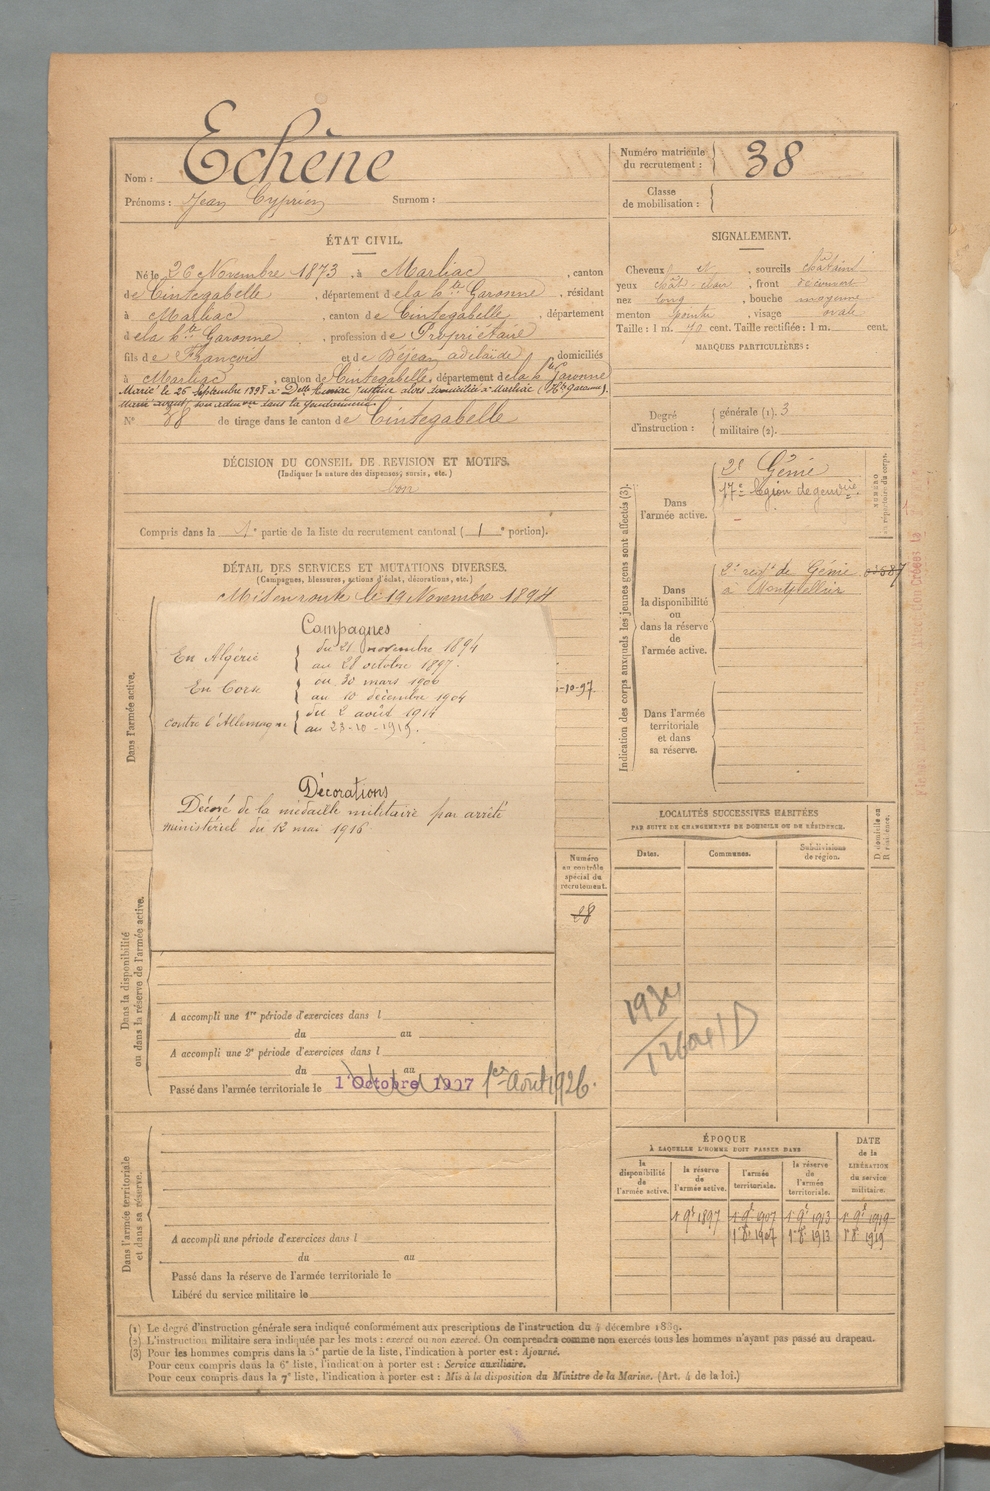 Nom : Echène
Prénoms : Jean Cyprien Surnom :
Numéro matricule du recrutement : 38
Classe de mobilisation :
ÉTAT CIVIL.
Né le 26 Novembre 1873, à Marliac, canton
de Cintegabelle, département de la hte Garonne, résidant
à Marliac, canton de Cintegabelle, département
de la hte Garonne, profession de Propriétaire
fils de François et de Déjean adelaïde domiciliés
à Marliac, canton de Cintegabelle, département de la hte Garonne
Marié le 26 Septembre 1898 à Delle alors domiciliée à Marliac (Hte Garonne).
dans la gendarmerie
N° 88 de tirage dans le canton de Cintegabelle
SIGNALEMENT.
Cheveux et, sourcils châtains
yeux chât-clair, front découvert
nez long, bouche moyenne
menton pointu, visage ovale
Taille : 1 m. 70 cent. Taille rectifiée : 1 m. cent.
MARQUES PARTICULIÈRES :
Degré d'instruction : générale (1). 3
militaire (2).
DÉCISION DU CONSEIL DE REVISION ET MOTIFS.
(Indiquer la nature des dispenses, sursis, etc.)
bon
Compris dans la 1e partie de la liste du recrutement cantonal (1e portion).
DÉTAIL DES SERVICES ET MUTATIONS DIVERSES.
(Campagnes, blessures, actions d'éclat, décorations, etc.)
Mis en route le 19 Novembre 1894
Dans l'armée active.
Campagnes
En Algérie du 21 novembre 1894
au 28 octobre 1897.
En Corse du 30 mars 1900
au 10 décembre 1904
contre l'Allemagne du 2 août 1914
au 23-10-1919.
-10-97.
Décorations
Décoré de la médaille militaire par arrêté
ministériel du 12 mai 1916
Indication des corps auxquels les jeunes gens sont affectés (3).
Dans l'armée active.
2e Génie
17e légion de gendrie
NUMÉRO au répertoire du corps.
Dans la disponibilité ou dans la réserve de l'armée active.
2e régt de Génie
à Montpellier
Dans l'armée territoriale et dans sa réserve.
LOCALITÉS SUCCESSIVES HABITÉES
PAR SUITE DE CHANGEMENTS DE DOMICILE OU DE RÉSIDENCE.
Dates. Communes. Subdivisions de région. D domicile ou R résidence.
Numéro au contrôle spécial du recrutement.
28
Dans la disponibilité ou dans la réserve de l'armée active.
A accompli une 1re période d'exercices dans l
du au
A accompli une 2e période d'exercices dans l
du au
Passé dans l'armée territoriale le 1 Octobre 1907 1er Août 1926.
Dans l'armée territoriale et dans sa réserve.
A accompli une période d'exercices dans l
du au
Passé dans la réserve de l'armée territoriale le
Libéré du service militaire le
ÉPOQUE
À LAQUELLE L'HOMME DOIT PASSER DANS
la disponibilité de l'armée active. la réserve de l'armée active. l'armée territoriale. la réserve de l'armée territoriale. DATE de la LIBÉRATION du service militaire.
1 9e 1897 1 9e 1907 1 9e 1913 1 9e 1919
1r 8e 1907 1r 8e 1913 1r 8e 1919
(1) Le degré d'instruction générale sera indiqué conformément aux prescriptions de l'instruction du 4 décembre 1889.
(2) L'instruction militaire sera indiquée par les mots : exercé ou non exercé. On comprendra comme non exercés tous les hommes n'ayant pas passé au drapeau.
(3) Pour les hommes compris dans la 5e partie de la liste, l'indication à porter est : Ajourné.
Pour ceux compris dans la 6e liste, l'indication à porter est : Service auxiliaire.
Pour ceux compris dans la 7e liste, l'indication à porter est : Mis à la disposition du Ministre de la Marine. (Art. 4 de la loi.)